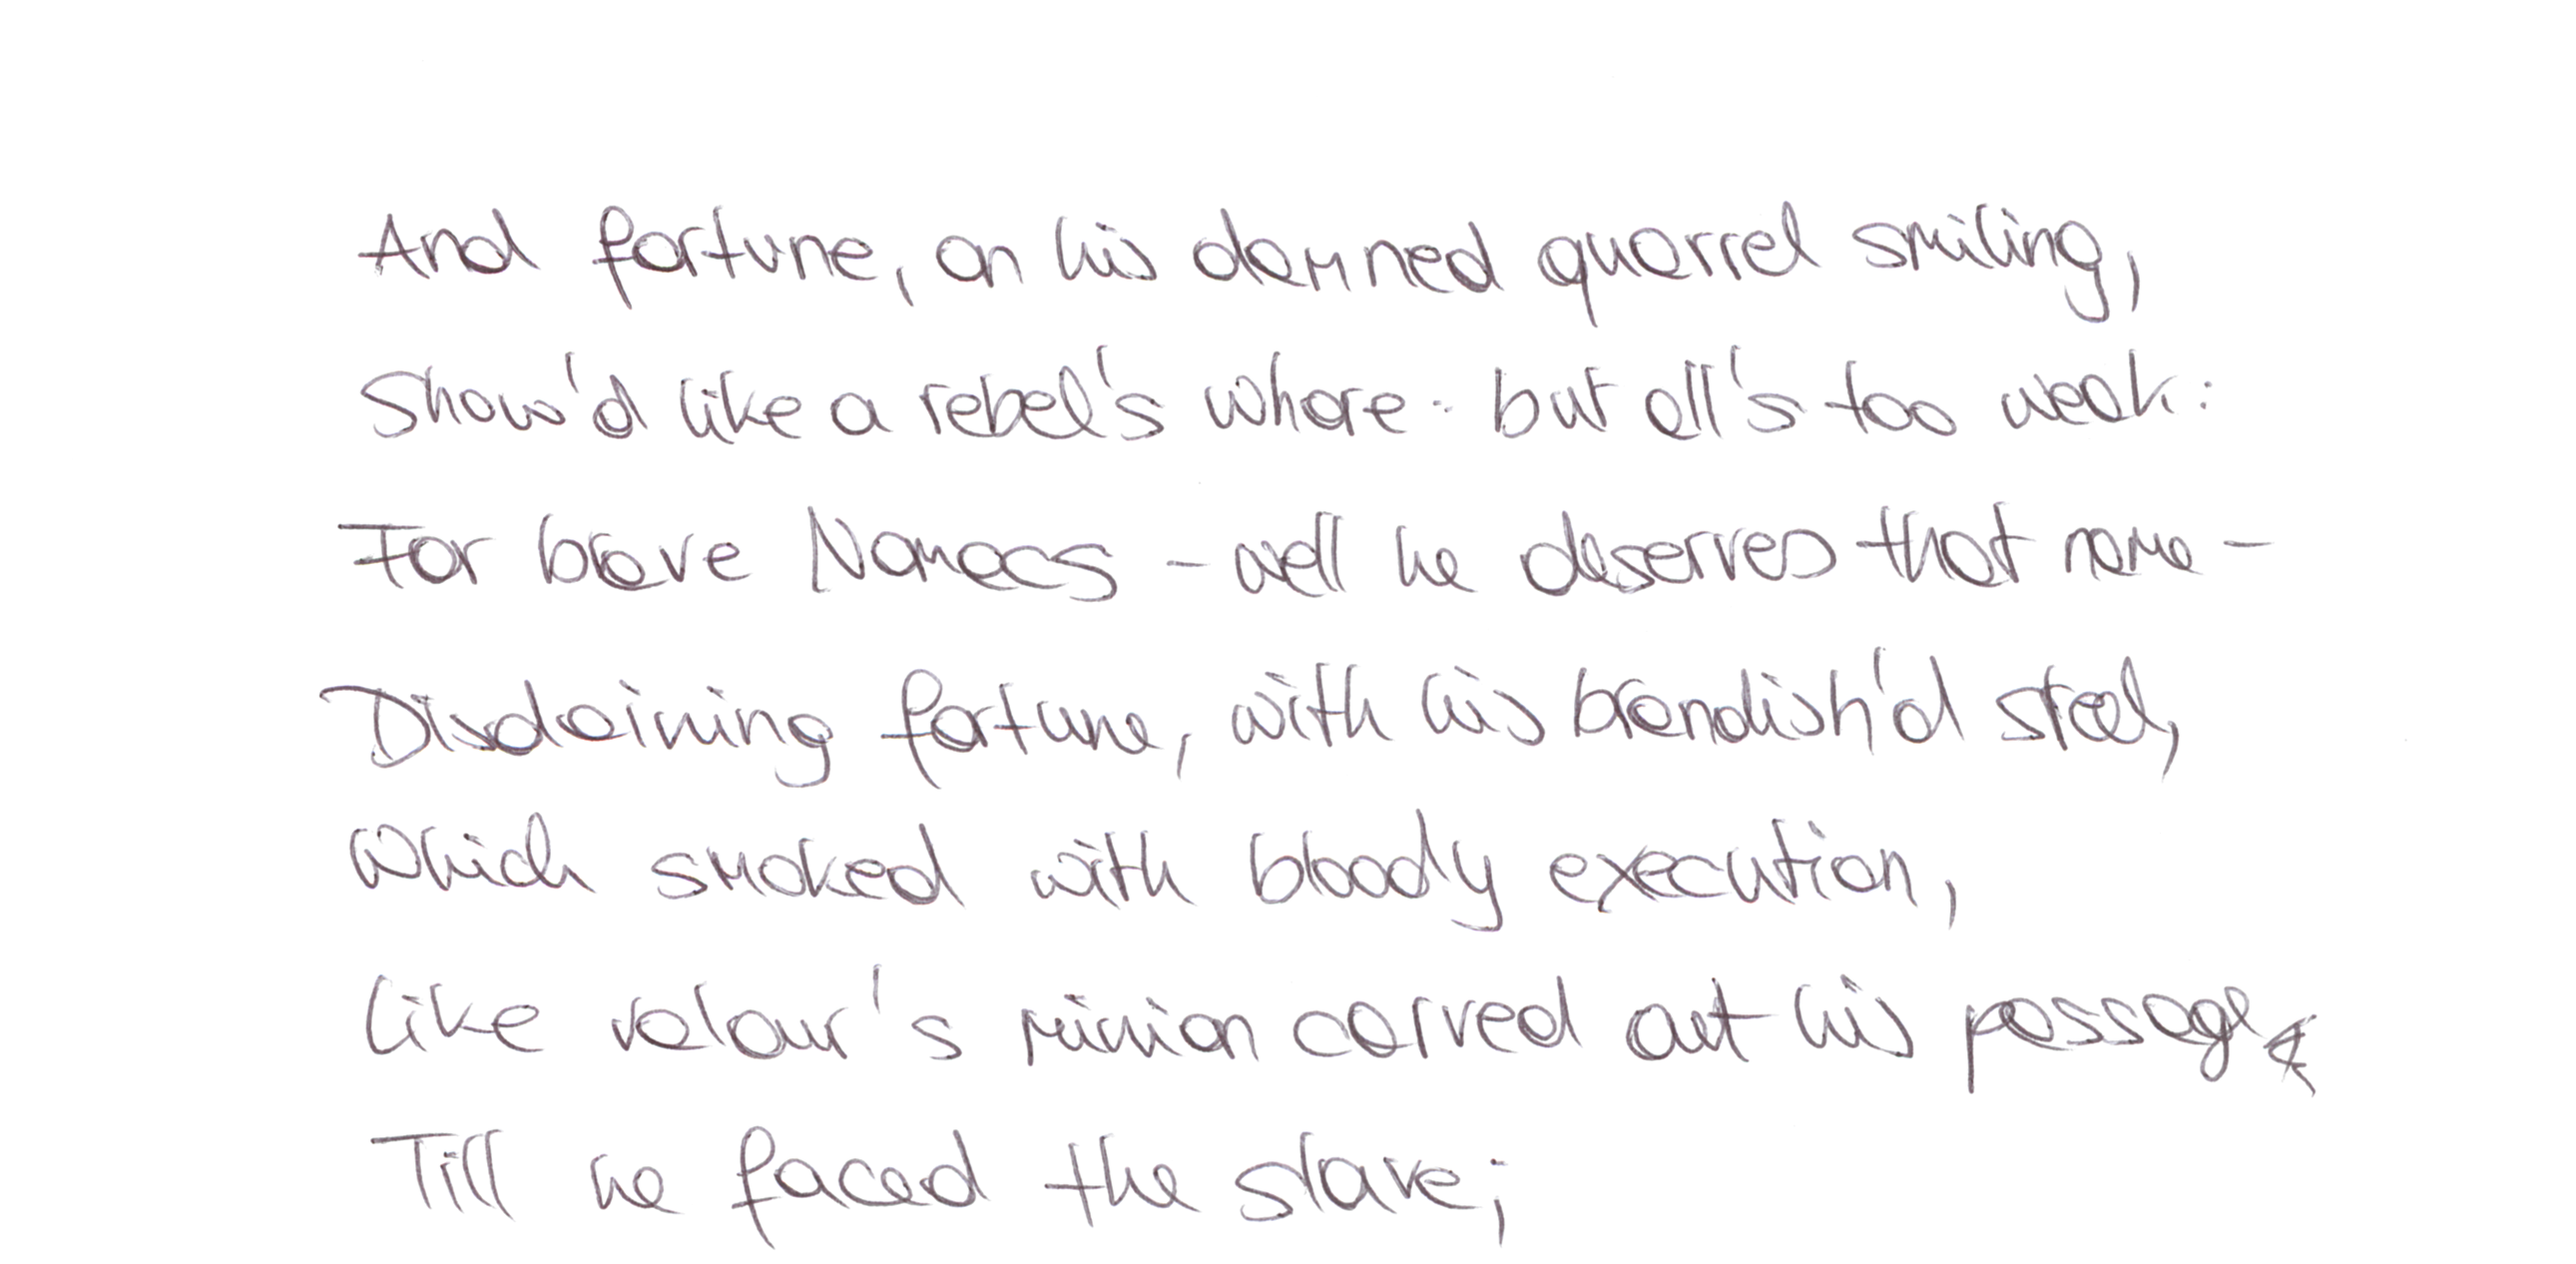 And fortune, on his damned quarrel smiling,
Show'd like a rebel's whore: but all's too weak:
For brave Namecs - well he deserves that name -
Disdaining fortune, with his brandish'd steel,
Which smoked with bloody execution,
Like valour's minion carved out his passage
Till he faced the slave;